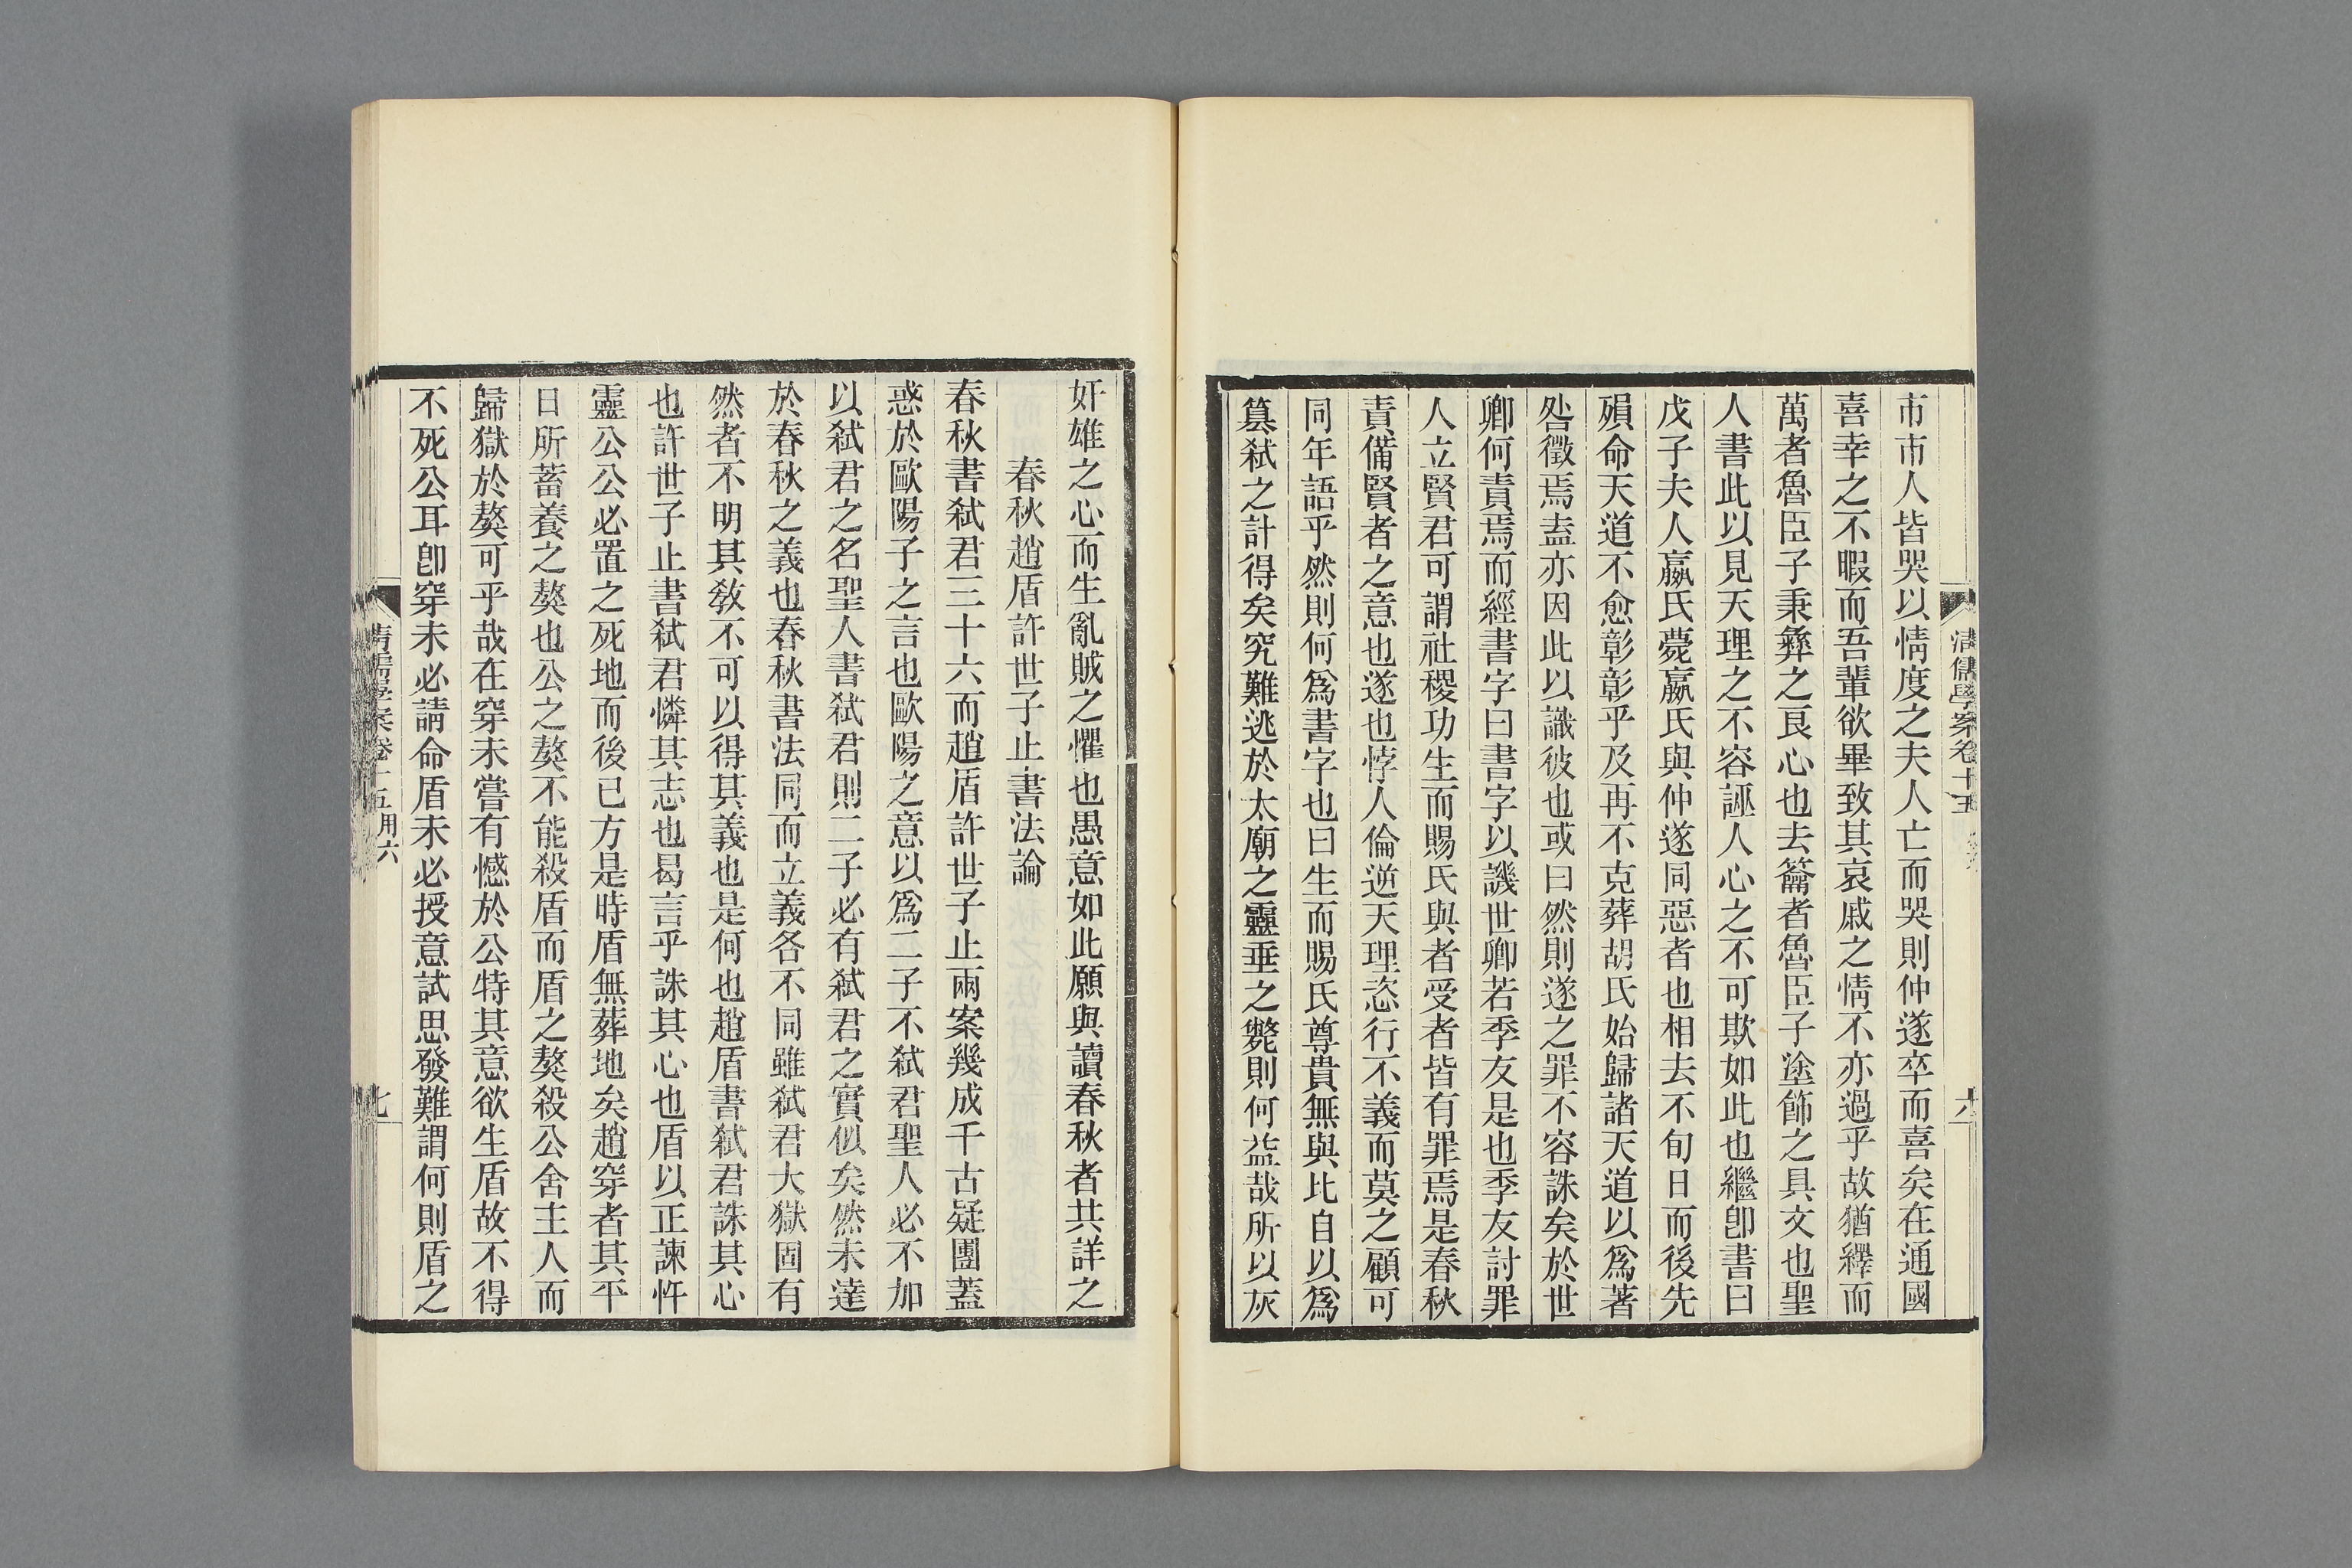 清儒學案卷十五
六
市市人皆哭以情度之夫人亡而哭則仲遂卒而喜矣在通國
喜幸之不暇而吾輩欲畢致其哀戚之情不亦過乎故猶繹而
萬者魯臣子秉彝之良心也去籥者魯臣子塗飾之具文也聖
人書此以見天理之不容誣人心之不可欺如此也繼卽書曰
戊子夫人嬴氏薨嬴氏與仲遂同惡者也相去不旬日而後先
殞命天道不愈彰彰乎及再不克葬胡氏始歸諸天道以爲著
咎徵焉盍亦因此以識彼也或曰然則遂之罪不容誅矣於世
卿何責焉而經書字曰書字以譏世卿若季友是也季友討罪
人立賢君可謂社稷功生而賜氏與者受者皆有罪焉是春秋
責備賢者之意也遂也悖人倫逆天理恣行不義而莫之顧可
同年語乎然則何爲書字也曰生而賜氏尊貴無與比自以爲
篡弒之計得矣究難逃於太廟之靈垂之斃則何益哉所以灰
奸雄之心而生亂賊之懼也愚意如此願與讀春秋者共詳之
春秋趙盾許世子止書法論
春秋書弒君三十六而趙盾許世子止兩案幾成千古疑團蓋
惑於歐陽子之言也歐陽之意以爲二子不弒君聖人必不加
以弒君之名聖人書弒君則二子必有弒君之實似矣然未達
於春秋之義也春秋書法同而立義各不同雖弒君大獄固有
然者不明其敎不可以得其義也是何也趙盾書弒君誅其心
也許世子止書弒君憐其志也曷言乎誅其心也盾以正諫忤
靈公公必置之死地而後已方是時盾無葬地矣趙穿者其平
日所蓄養之獒也公之獒不能殺盾而盾之獒殺公舍主人而
歸獄於獒可乎哉在穿未嘗有憾於公特其意欲生盾故不得
不死公耳卽穿未必請命盾未必授意試思發難謂何則盾之
清儒學案卷十五用六
七